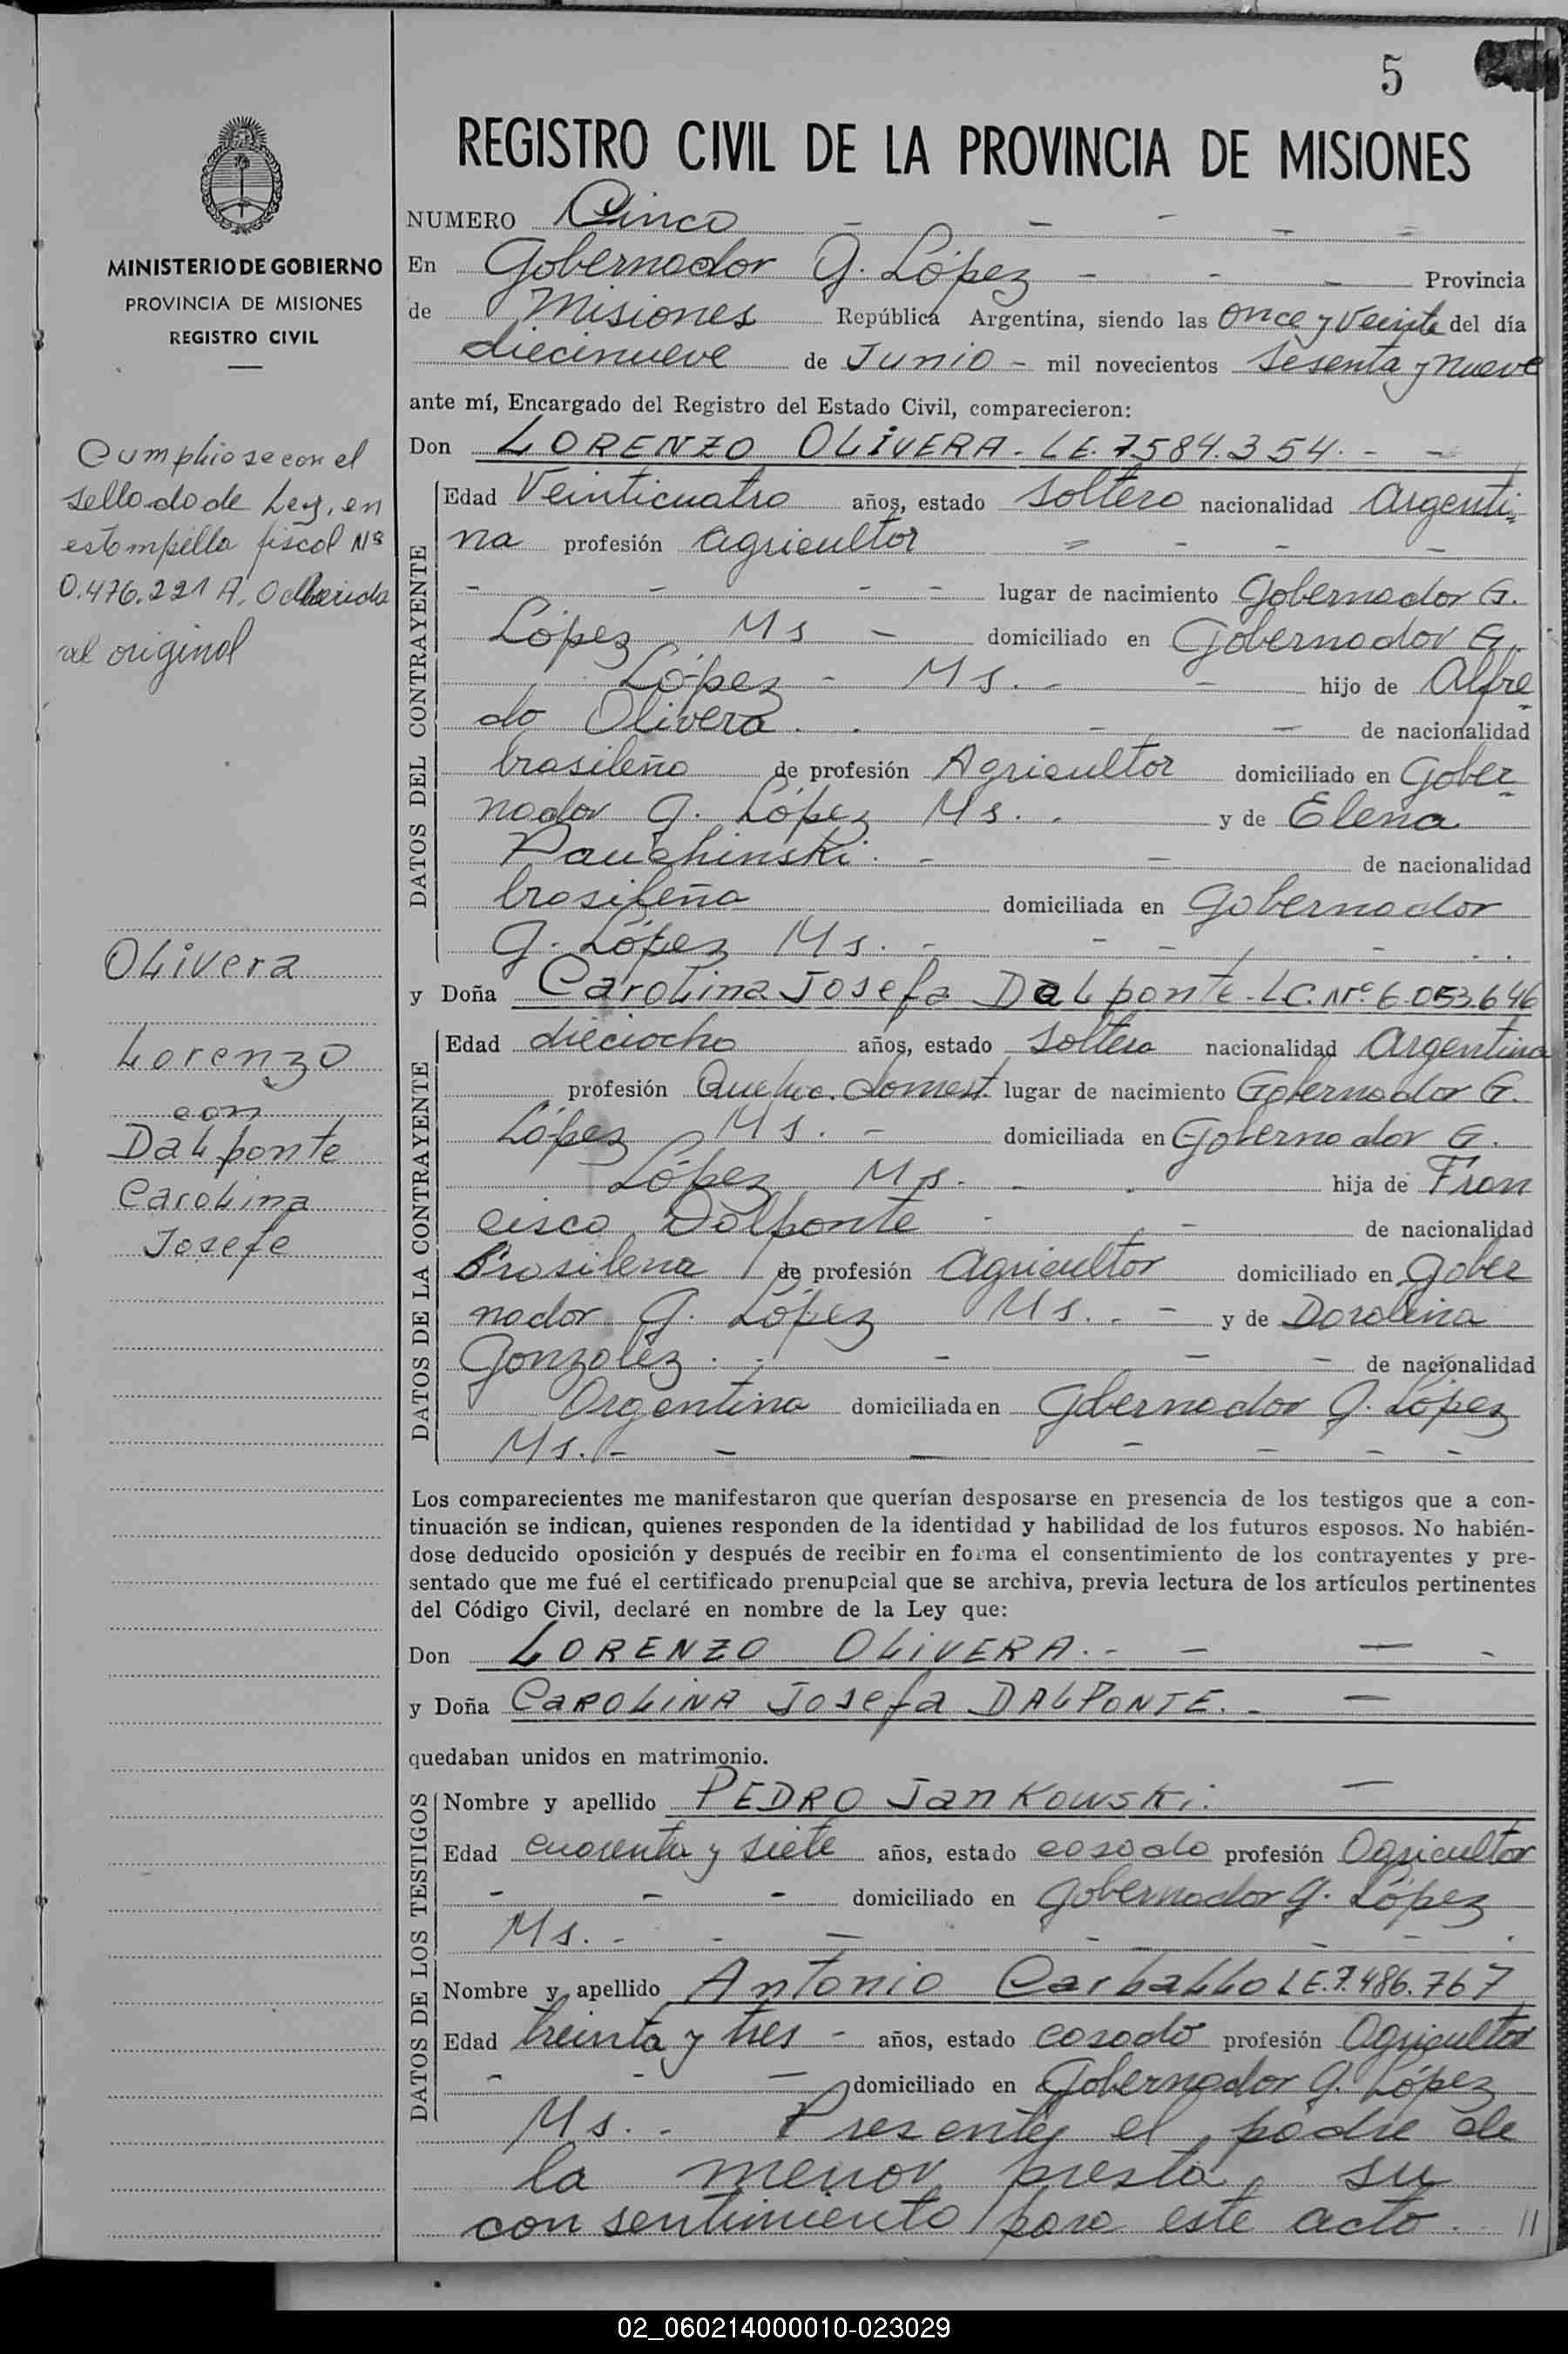 5
REGISTRO CIVIL DE LA PROVINCIA DE MISIONES
MINISTERIO DE GOBIERNO
PROVINCIA DE MISIONES
REGISTRO CIVIL
Cumpliose con el
sellado de Ley, en
estampilla fiscal Nº
0.476.221 A, Adherida
al original
Olivera
Lorenzo
con
Dalponte
Carolina
Josefa
NUMERO Cinco
En Gobernador G. López - - - Provincia
de Misiones República Argentina, siendo las once y veinte del día
diecinueve de Junio - mil novecientos sesenta y nueve
ante mí, Encargado del Registro del Estado Civil, comparecieron:
Don LORENZO OLIVERA - LE. 7.584.354. - -
DATOS DEL CONTRAYENTE
Edad Veinticuatro años, estado soltero nacionalidad Argenti-
na profesión agricultor
lugar de nacimiento Gobernador G.
López Ms - domiciliado en Gobernador G.
López - Ms. - hijo de Alfre
do Olivera. de nacionalidad
brasileño de profesión Agricultor domiciliado en Gober-
nador G. López Ms. - y de Elena
Pauchinski. - de nacionalidad
brasileña domiciliada en Gobernador
G. López Ms. -
y Doña Carolina Josefa Dalponte - LC. Nº 6.053.646
DATOS DE LA CONTRAYENTE
Edad dieciocho años, estado soltera nacionalidad Argentina
profesión Quehac. domest. lugar de nacimiento Gobernador G.
López Ms. - domiciliada en Gobernador G.
López Ms. - hija de Fran
cisco Dalponte - de nacionalidad
Brasilena de profesión Agricultor domiciliado en Gober
nador G. López Ms. - y de
González. - de nacionalidad
Argentina domiciliada en Gobernador G. López
Ms. -
Los comparecientes me manifestaron que querían desposarse en presencia de los testigos que a con-
tinuación se indican, quienes responden de la identidad y habilidad de los futuros esposos. No habién-
dose deducido oposición y después de recibir en forma el consentimiento de los contrayentes y pre-
sentado que me fué el certificado prenupcial que se archiva, previa lectura de los artículos pertinentes
del Código Civil, declaré en nombre de la Ley que:
Don LORENZO OLIVERA. -
y Doña CAROLINA Josefa DALPONTE. -
quedaban unidos en matrimonio.
DATOS DE LOS TESTIGOS
Nombre y apellido PEDRO JanKowsKi.
Edad cuarenta y siete años, estado casado profesión Agricultor
domiciliado en Gobernador G. López
Ms. -
Nombre y apellido Antonio Carballo LE. 7.486.767
Edad treinta y tres - años, estado casado profesión Agricultor
domiciliado en Gobernador G. López
Ms. - Presente el padre de
la menor presta su
consentimiento para este acto. //
02_060214000010-023029